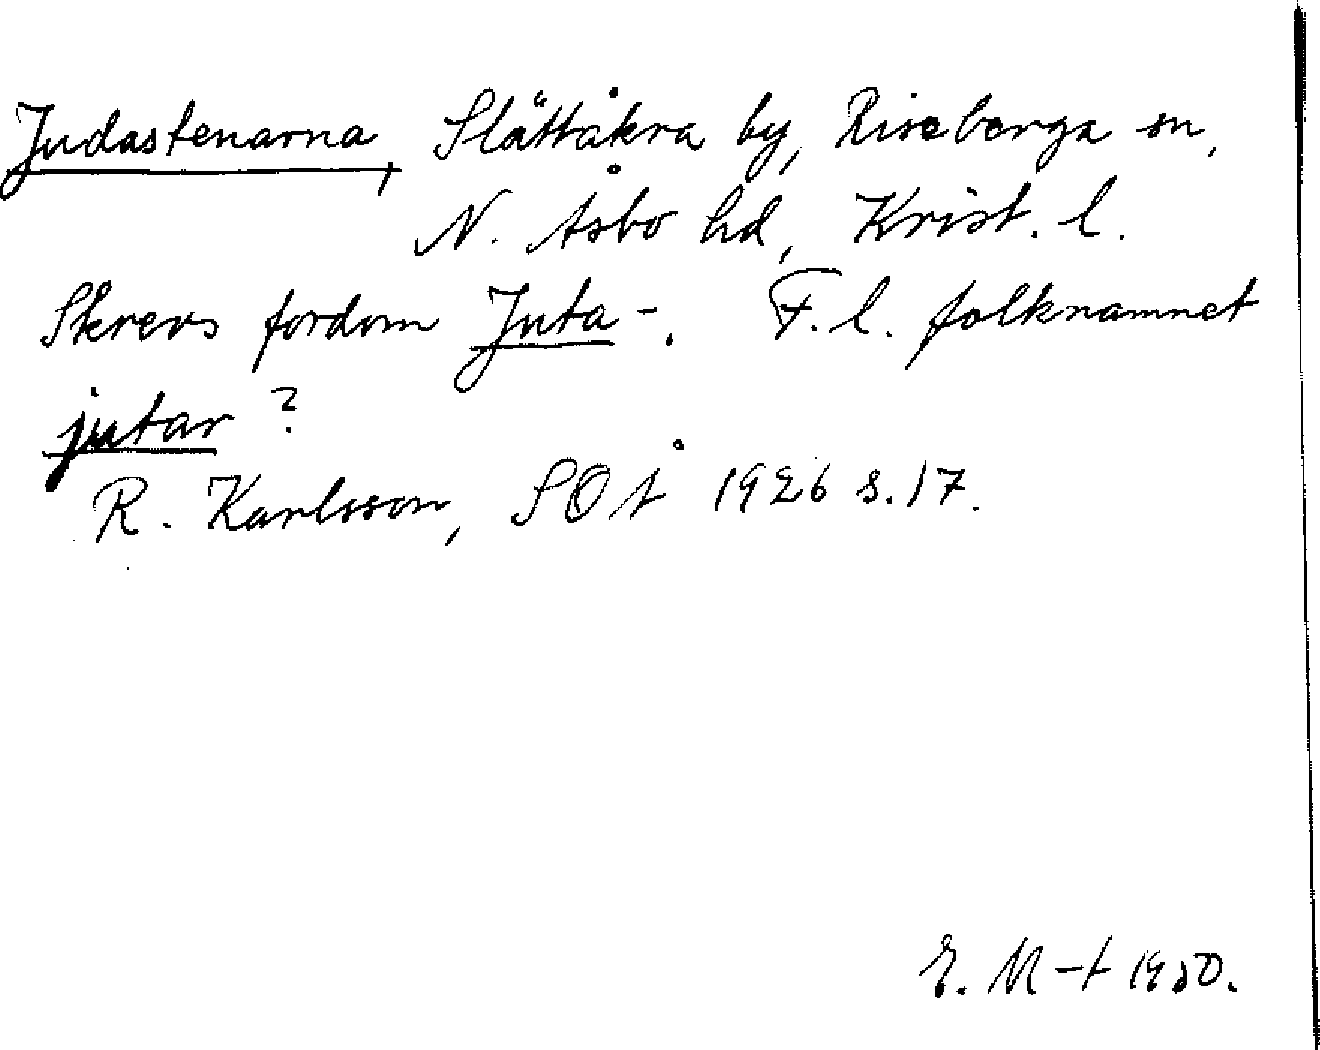 Judastenarna, Slättåkra by, Riseberga sn,
N. Åsbo hd, Krist. l.
Skrevs fordom Juta-. F.l. folknamnet
jutar?
R. Karlsson, SOÅ 1926 s. 17.
E. M-t 1950.